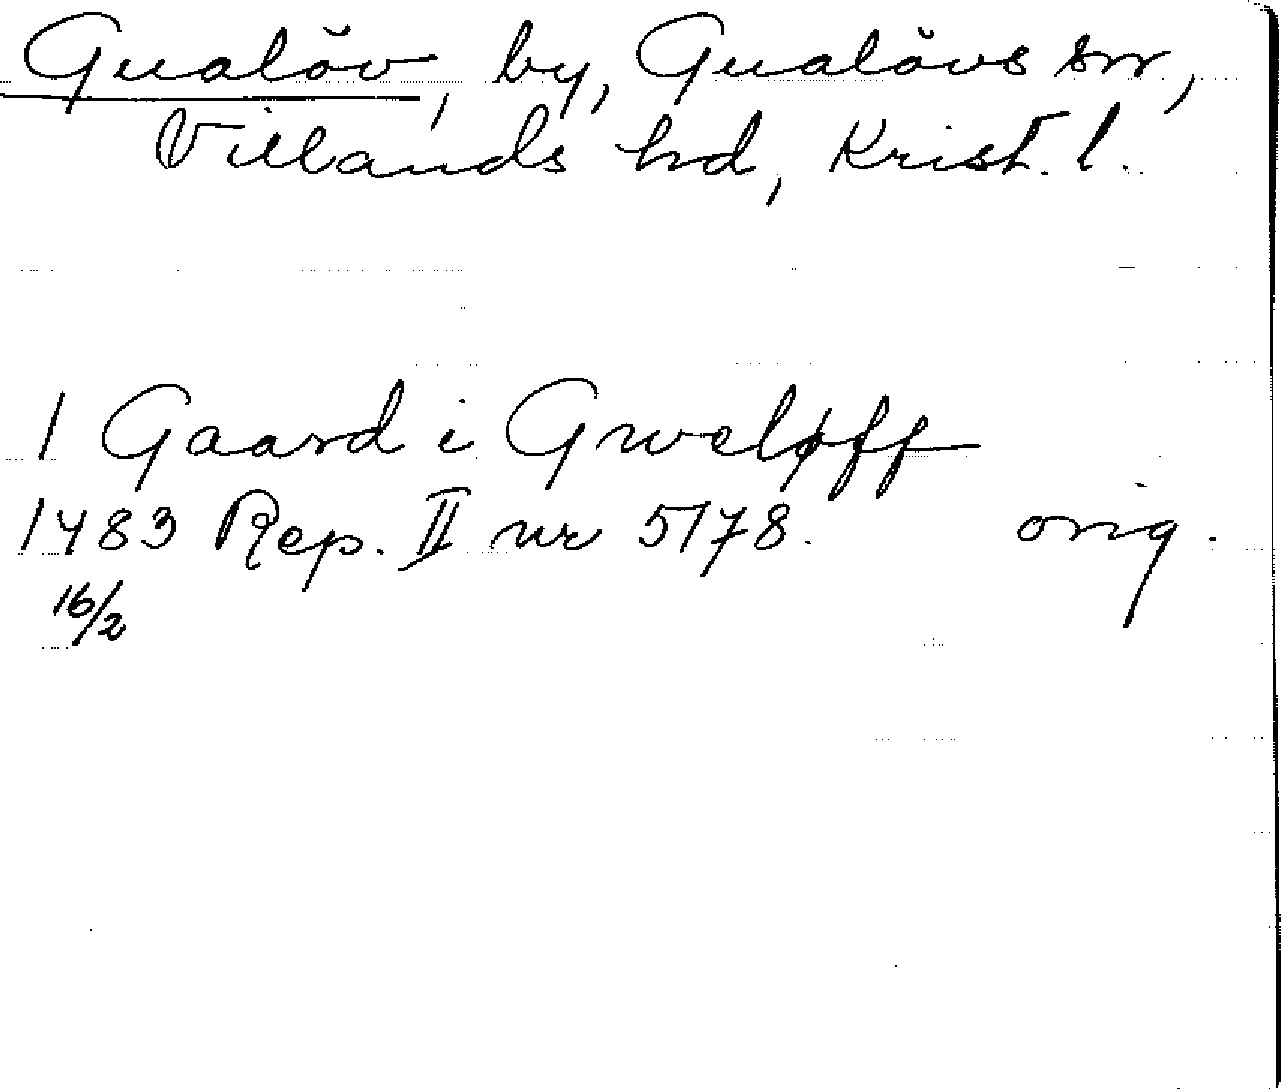 Gualöv, by, Gualövs sn,
Villands hd, Krist. l.
1 Gaard i Gweløff
1483 Rep. II nr 5178. orig.
16/2